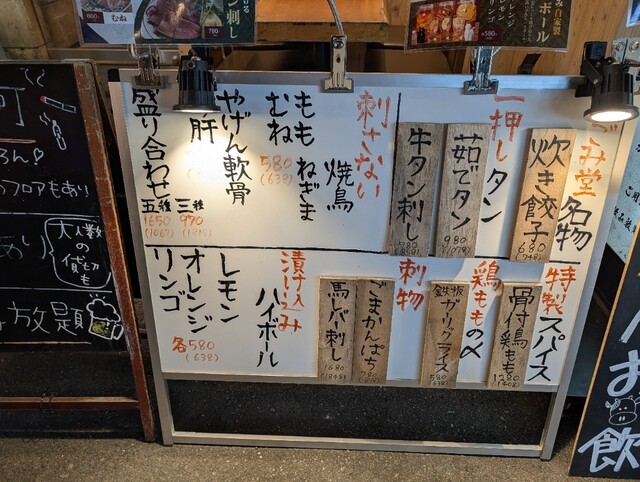 ぐみ堂名物
炊き餃子
680
(748)
一押しタン
茹でタン
980
(1078)
牛タン刺し
刺さない焼鳥
もも ねぎま
むね
580
(638)
やげん軟骨
肝
盛り合わせ
三種
970
五種
1650
特製スパイス
骨付鳥もも
1280
(1408)
鶏ももの〆
鉄板ガーリックライス
580
(638)
刺物
ごまかんぱち
馬バラ刺し
1680
(1848)
漬け込みハイボール
レモン
オレンジ
リンゴ
各580
(638)
むね
刺し
780
ボール
580
のフロアもあり
大人数の貸切も
放題
飲